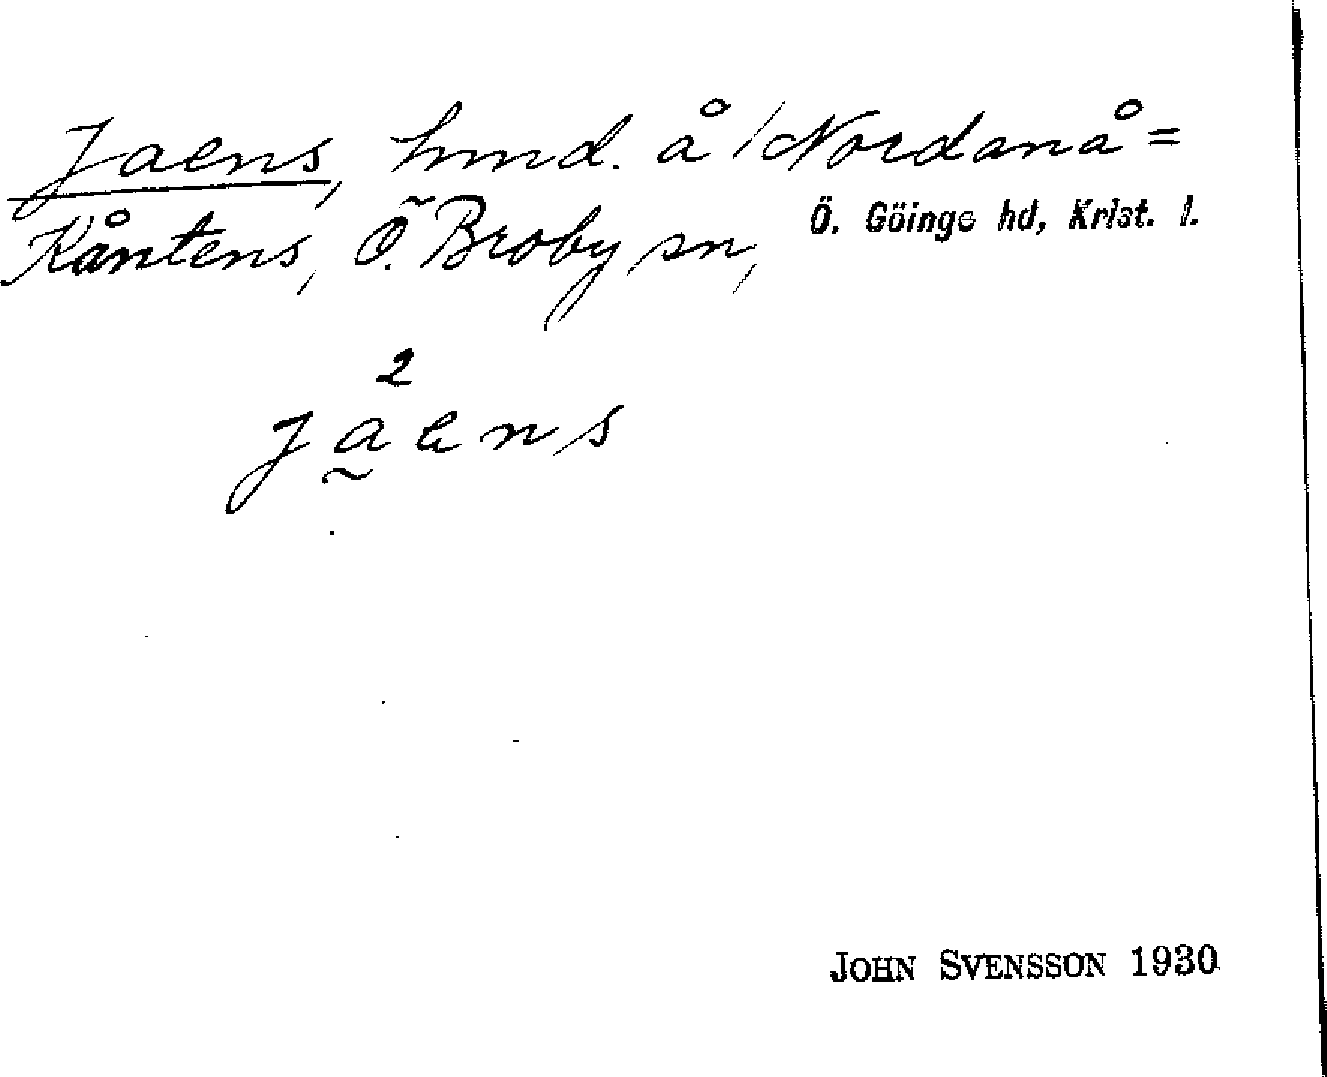 Jaens, hmd. å Nordanå=
Kåntens, Ö. Broby sn, Ö. Göinge hd, Krist. l.
2
jaens
JOHN SVENSSON 1930